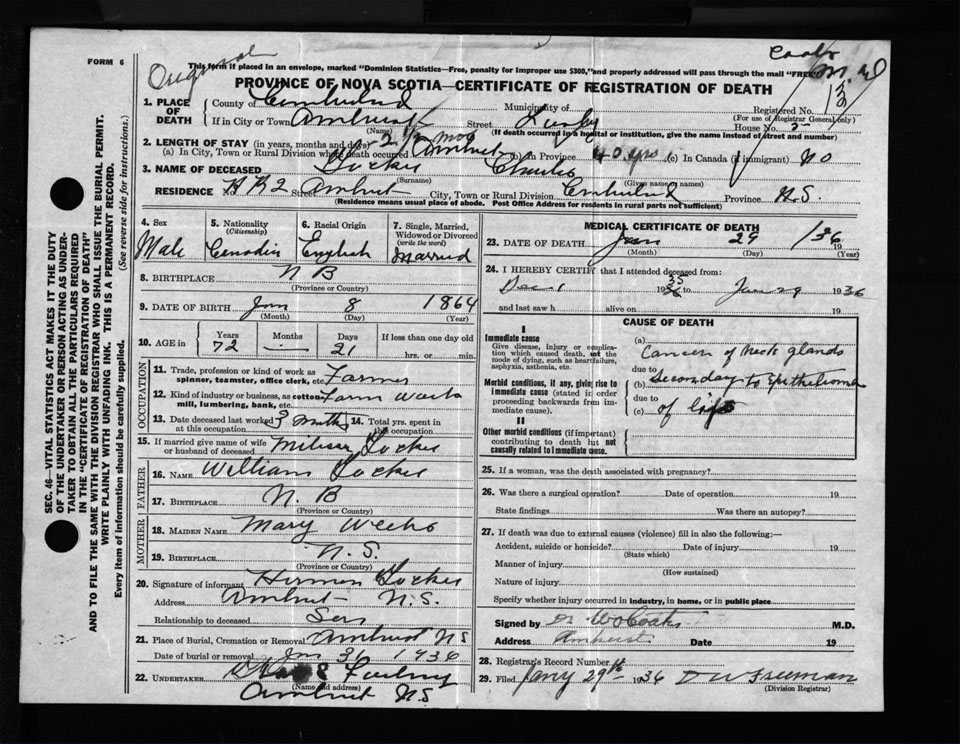 FORM 6
Original
This form if placed in an envelope, marked "Dominion Statistics—Free, penalty for improper use $300," and properly addressed will pass through the mail "FREE"
PROVINCE OF NOVA SCOTIA—CERTIFICATE OF REGISTRATION OF DEATH
1. PLACE OF DEATH
County of Cumberland Municipality of Registered No.
(For use of Registrar General only)
If in City or Town Amherst Street House No.
(Name) (If death occurred in a hospital or institution, give the name instead of street and number)
2. LENGTH OF STAY (in years, months and days)
(a) In City, Town or Rural Division where death occurred Amherst (b) in Province 40 yrs (c) In Canada (if immigrant) No
3. NAME OF DECEASED Charles
(Surname) (Given name or names)
RESIDENCE No. Street Amherst City, Town or Rural Division Cumberland Province N.S.
(Residence means usual place of abode. Post Office Address for residents in rural parts not sufficient)
4. Sex
Male
5. Nationality
(Citizenship)
Canadian
6. Racial Origin
English
7. Single, Married, Widowed or Divorced
(write the word)
Married
8. BIRTHPLACE N B
(Province or Country)
9. DATE OF BIRTH Jan 8 1864
(Month) (Day) (Year)
10. AGE in Years Months Days If less than one day old
72 — 21 hrs. or min.
OCCUPATION
11. Trade, profession or kind of work as spinner, teamster, office clerk, etc. Farmer
12. Kind of industry or business, as cotton mill, lumbering, bank, etc. Farm Work
13. Date deceased last worked at this occupation 3 months 14. Total yrs. spent in this occupation
15. If married give name of wife or husband of deceased
FATHER
16. NAME William
17. BIRTHPLACE N. B
(Province or Country)
MOTHER
18. MAIDEN NAME Mary Weeks
19. BIRTHPLACE N.S.
(Province or Country)
20. Signature of informant
Address Amherst N.S.
Relationship to deceased Son
21. Place of Burial, Cremation or Removal Amherst NS
Date of burial or removal Jan 31 1936
22. UNDERTAKER
(Name and address)
Amherst N.S.
MEDICAL CERTIFICATE OF DEATH
23. DATE OF DEATH Jan 29 /36 19
(Month) (Day) (Year)
24. I HEREBY CERTIFY that I attended deceased from:
Dec 1 1935 to Jan 29 1936
and last saw h alive on 19
CAUSE OF DEATH
I
Immediate cause
Give disease, injury or complication which caused death, not the mode of dying, such as heart failure, asphyxia, asthenia, etc.
(a) Cancer of neck glands
due to
Morbid conditions, if any, giving rise to immediate cause (stated in order proceeding backwards from immediate cause).
(b) Secondary to Epithelioma
due to
(c) of lips
II
Other morbid conditions (if important) contributing to death but not causally related to immediate cause.
25. If a woman, was the death associated with pregnancy?
26. Was there a surgical operation? Date of operation 19
State findings Was there an autopsy?
27. If death was due to external causes (violence) fill in also the following:—
Accident, suicide or homicide? Date of injury 19
(State which)
Manner of injury
(How sustained)
Nature of injury
Specify whether injury occurred in industry, in home, or in public place
Signed by M.D.
Address Amherst Date 19
28. Registrar's Record Number
29. Filed Jany 29th 1936 D W Freeman
(Division Registrar)
SEC. 46—VITAL STATISTICS ACT MAKES IT THE DUTY
OF THE UNDERTAKER OR PERSON ACTING AS UNDERTAKER
TO OBTAIN ALL THE PARTICULARS REQUIRED
IN THE "CERTIFICATE OF REGISTRATION OF DEATH"
AND TO FILE THE SAME WITH THE DIVISION REGISTRAR WHO SHALL ISSUE THE BURIAL PERMIT.
WRITE PLAINLY WITH UNFADING INK. THIS IS A PERMANENT RECORD.
Every item of information should be carefully supplied. (See reverse side for instructions.)